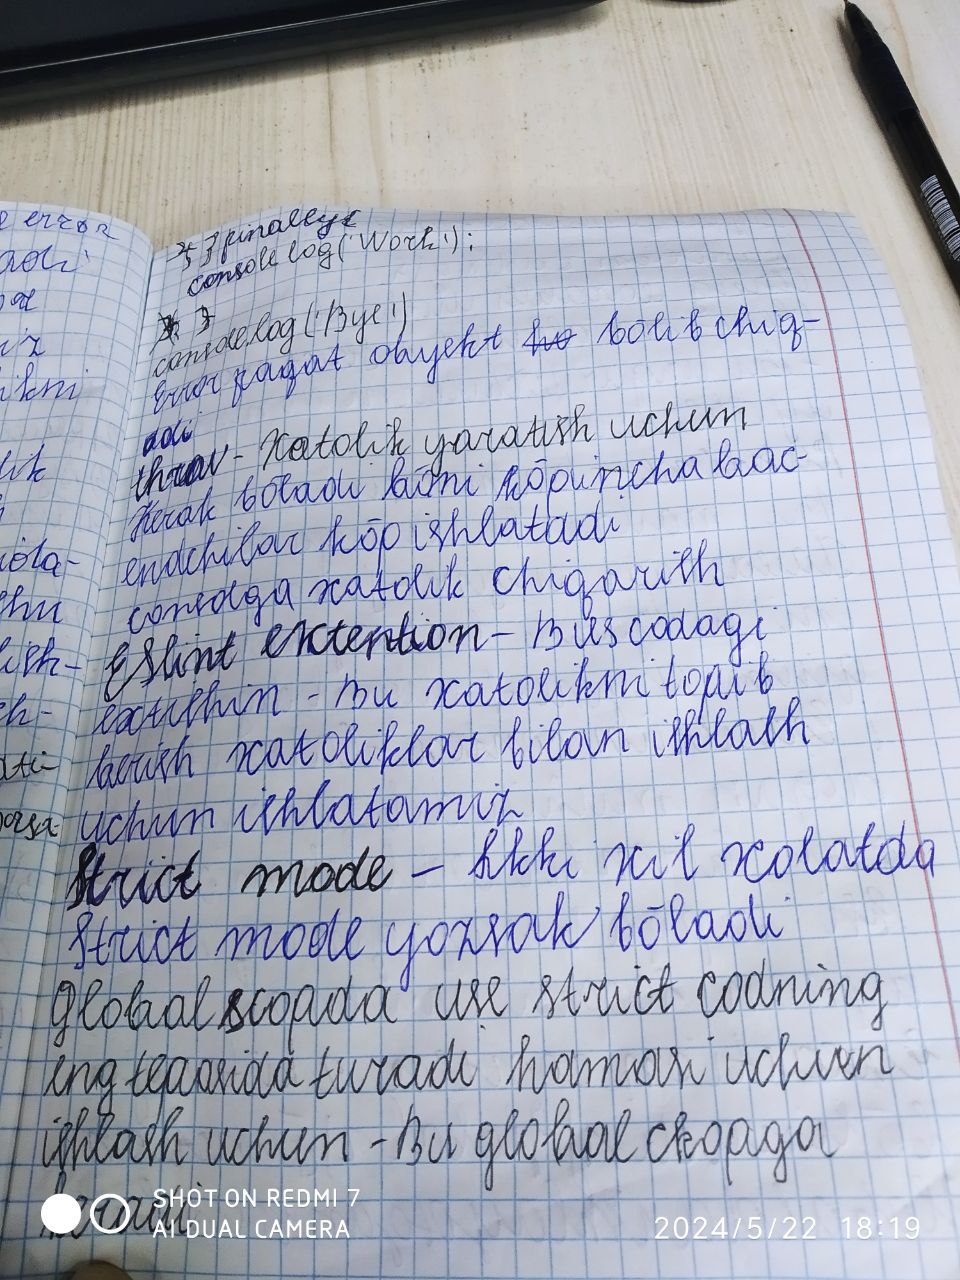 e error
} finally {
console.log('Work');
console.log('Bye')
Error faqat obyekt bo‘lib chiq-
adi
throw - Xatolik yaratish uchun
kerak bo‘ladi buni ko‘pincha bac-
endchilar ko‘p ishlatadi
consolga xatolik chiqarish
ESlint extention - Bu vscodagi
extishin - Bu xatolikni topib
berish xatoliklar bilan ishlash
uchun ishlatamiz
Strict mode - Ikki xil xolatda
strict mode yozsak bo‘ladi
Global scopada use strict codning
eng tepasida turadi hamasi uchun
ishlash uchun - Bu global ckopaga
SHOT ON REDMI 7
AI DUAL CAMERA
2024/5/22 18:19